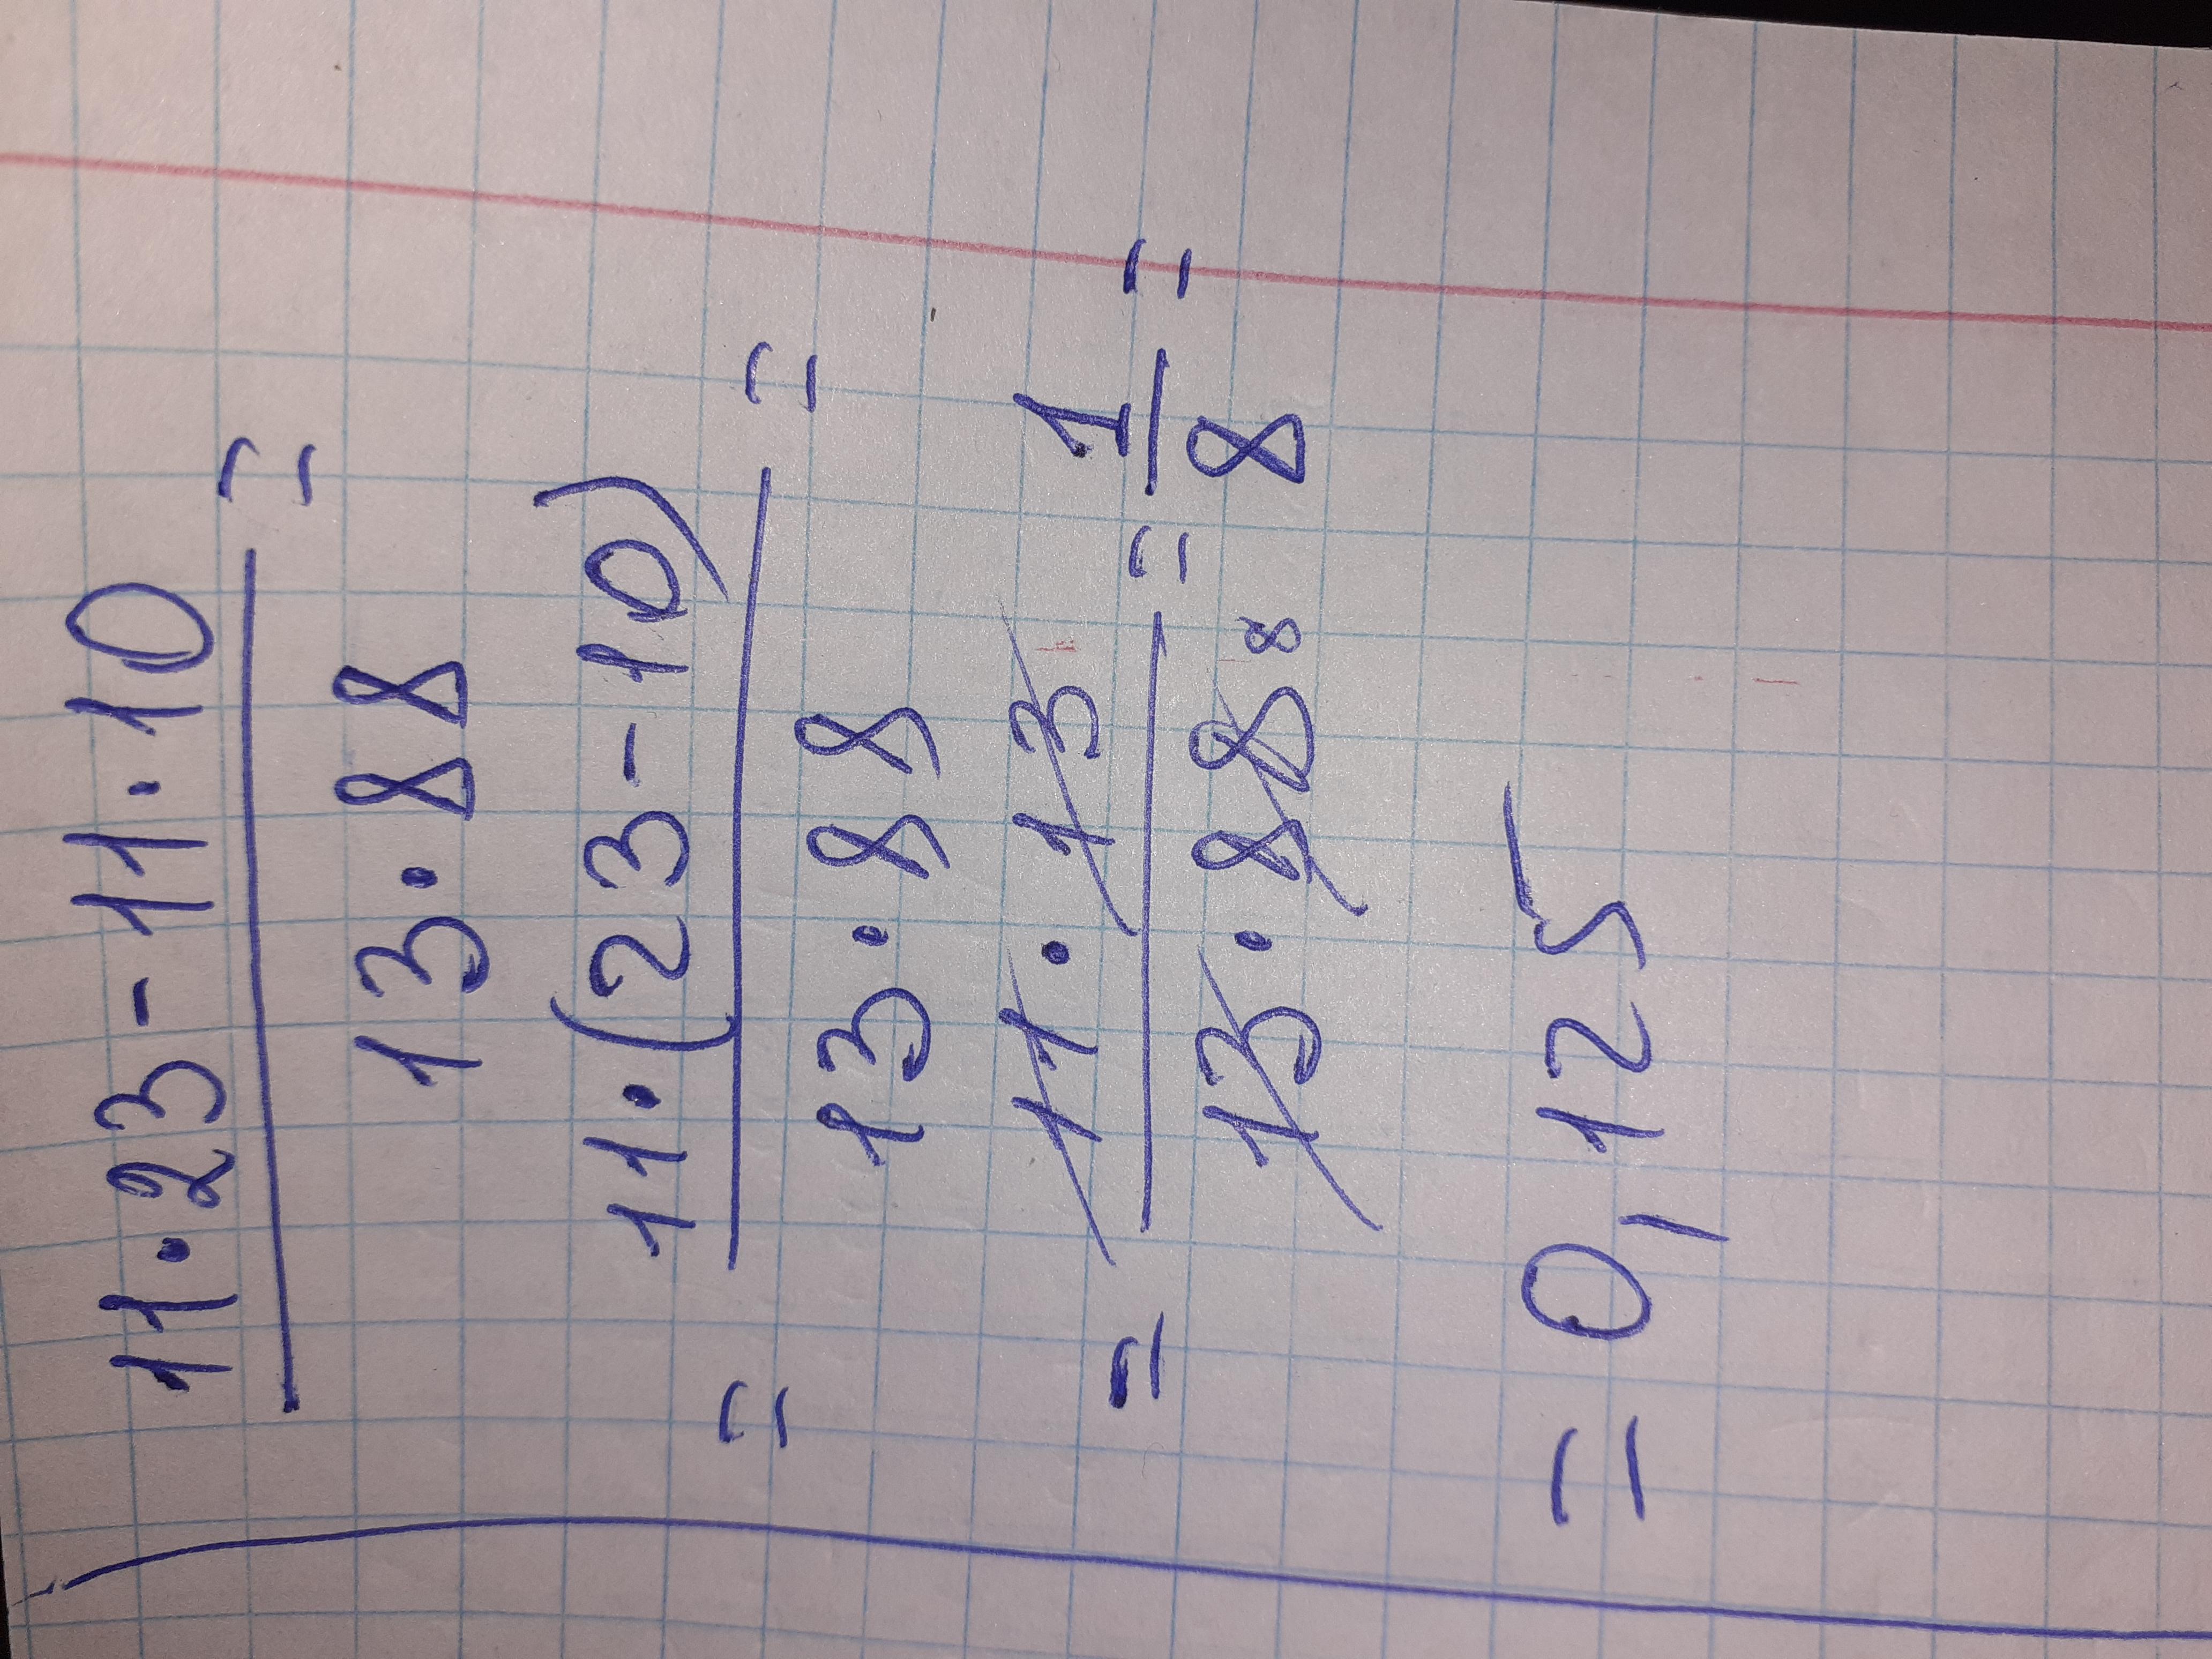 11·23-11·10 =
13·88
= 11·(23-10) =
13·88
= 11·13 = 1 =
13·88 8 8
= 0,125